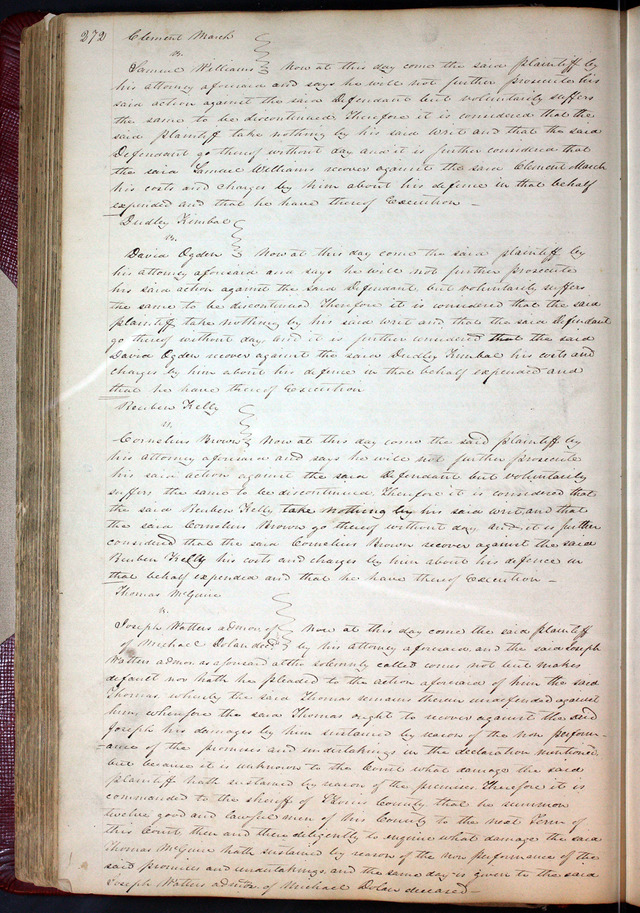 272 Clement March
vs.
Samuel Williams Now at this day come the said plaintiff by
his attorney aforesaid and says he will not further prosecute his
said action against the said Defendant but voluntarily suffers
the same to be discontinued Therefore it is considered that the
said plaintiff take nothing by his said writ and that the said
Defendant go thereof without day and it is further considered that
the said Samuel Williams recover against the said Clement March
his costs and charges by him about his defence in that behalf
expended and that he have thereof Execution —
Dudley Kimbal
vs.
David Ogden Now at this day come the said plaintiff by
his attorney aforesaid and says he will not further prosecute
his said action against the said Defendant but voluntarily suffers
the same to be discontinued Therefore it is considered that the said
plaintiff take nothing by his said writ and that the said Defendant
go thereof without day and it is further considered that the said
David Ogden recover against the said Dudley Kimbal his costs and
charges by him about his defence in that behalf expended and
that he have thereof Execution
Reuben Kelly
vs.
Cornelius Brown Now at this day come the said plaintiff by
his attorney aforesaid and says he will not further prosecute
his said action against the said Defendant but voluntarily
suffers the same to be discontinued Therefore it is considered that
the said Reuben Kelly take nothing by his said writ and that
the said Cornelius Brown go thereof without day and it is further
considered that the said Cornelius Brown recover against the said
Reuben Kelly his costs and charges by him about his defence in
that behalf expended and that he have thereof Execution —
Thomas McGuire
vs.
Joseph Walters admor. of Now at this day come the said plaintiff
of Michael Dolan decd by his attorney aforesaid and the said Joseph
Walters admor as aforesaid altho solemnly called comes not but makes
default nor hath he pleaded to the action aforesaid of him the said
Thomas whereby the said Thomas remains therein undefended against
him, wherefore the said Thomas ought to recover against the said
Joseph his damages by him sustained by reason of the non perform-
-ance of the promises and undertakings in the declaration mentioned
but because it is unknown to the Court what damage the said
plaintiff hath sustained by reason of the premises Therefore it is
commanded to the sheriff of St Louis County that he summon
twelve good and lawful men of his County to the next Term of
this Court then and there diligently to enquire what damage the said
Thomas McGuire hath sustained by reason of the non performance of the
said promises and undertakings, and the same day is given to the said
Joseph Walters admtor. of Michael Dolan deceased —